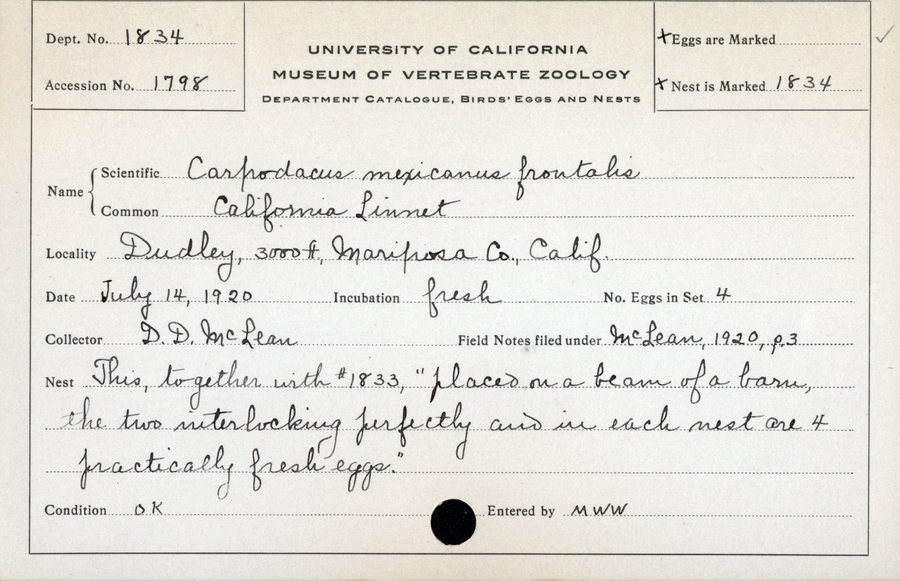 Dept. No. 1834
Accession No. 1798
UNIVERSITY OF CALIFORNIA
MUSEUM OF VERTEBRATE ZOOLOGY
DEPARTMENT CATALOGUE, BIRDS' EGGS AND NESTS
+Eggs are Marked
+ Nest is Marked 1834
Name
Scientific Carpodacus mexicanus frontalis
Common California Linnet
Locality Dudley, 3000 ft, Mariposa Co., Calif.
Date July 14, 1920 Incubation fresh No. Eggs in Set 4
Collector D. D. McLean Field Notes filed under McLean, 1920, p.3
Nest This, together with #1833, "placed on a beam of a barn,
the two interlocking perfectly and in each nest are 4
practically fresh eggs."
Condition OK Entered by MWW